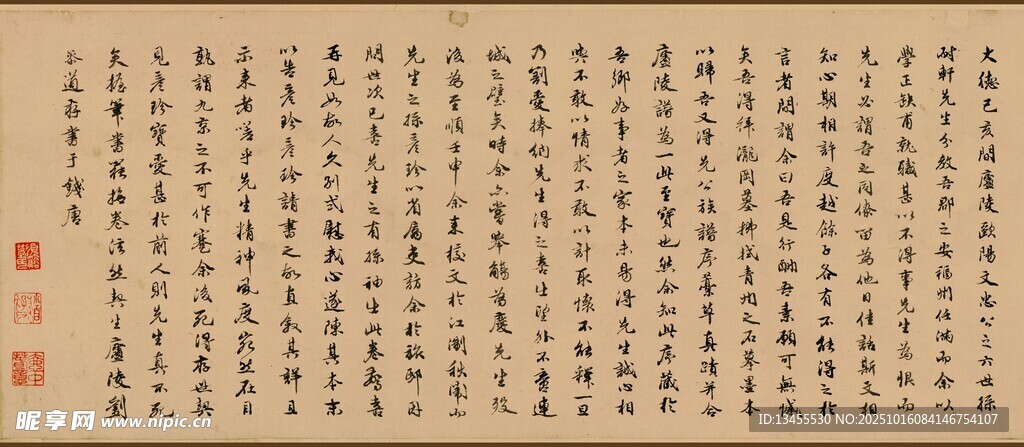 大德己亥間廬陵歐陽文忠公之六世孫
耐軒先生分教吾郡之安福州任滿而余以
學正缺甫就職甚以不得事先生為恨而
先生必謂吾之同僚留為他日佳話斯文相
知心期相許度越餘子各有不能得之於
言者間謂余曰吾是行酬吾素願可無憾
矣吾得拜瀧岡墓拂拭青州之石摹墨本
以歸吾又得先公族譜序藁草真蹟并合
廬陵譜為一此至寶也然余知此序藏於
吾鄉好事者之家本未易得先生誠心相
與不敢以情求不敢以計取懷不能釋一旦
乃劉愛捧納先生得之喜出望外不啻連
城之璧矣時余亦嘗舉觴為慶先生歿
後為至順壬申余來校文於江浙秋闈而
先生之孫彥珍以省屬吏訪余於旅邸因
問世次已喜先生之有孫神出此卷驚喜
再見如故人久別式慰我心遂陳其本末
以告彥珍彥珍請書之故直敘其詳且
示來者嗟乎先生精神風度宛然在目
孰謂九京之不可作蹇余後死得存世契
見彥珍寶愛甚於前人則先生真不死
矣握筆書罷撫卷泫然契生廬陵劉
道存書于錢唐
昵享网 www.nipic.cn
ID:13455530 NO:20251016084146754107